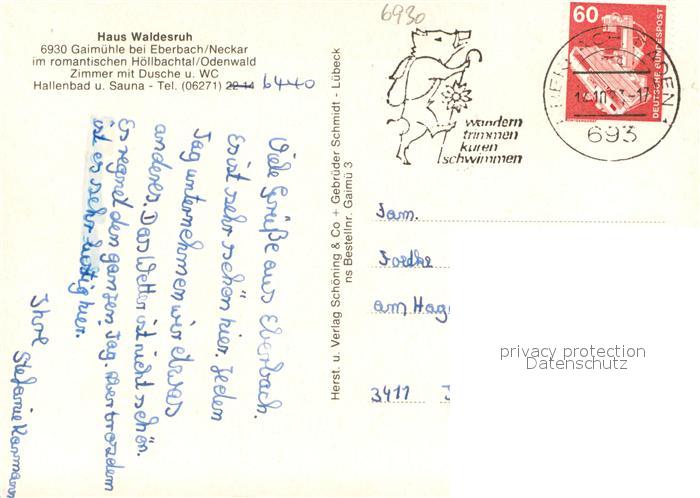 Haus Waldesruh
6930 Gaimühle bei Eberbach/Neckar
im romantischen Höllbachtal/Odenwald
Zimmer mit Dusche u. WC
Hallenbad u. Sauna - Tel. (06271) 22 14 6440
6930
60
DEUTSCHE BUNDESPOST
693
wandern
trimmen
kuren
schwimmen
Viele Grüße aus Eberbach.
Es ist sehr schön hier. Jeden
Tag unternehmen wir etwas
anderes. Das Wetter ist nicht schön.
Es regnet den ganzen Tag. Aber trotzdem
ist es sehr lustig hier.
Ihre
Stefanie
Herst. u. Verlag Schöning & Co + Gebrüder Schmidt - Lübeck
ns Bestellnr. Gaimü 3
Fam.
am Hag
3411
privacy protection
Datenschutz